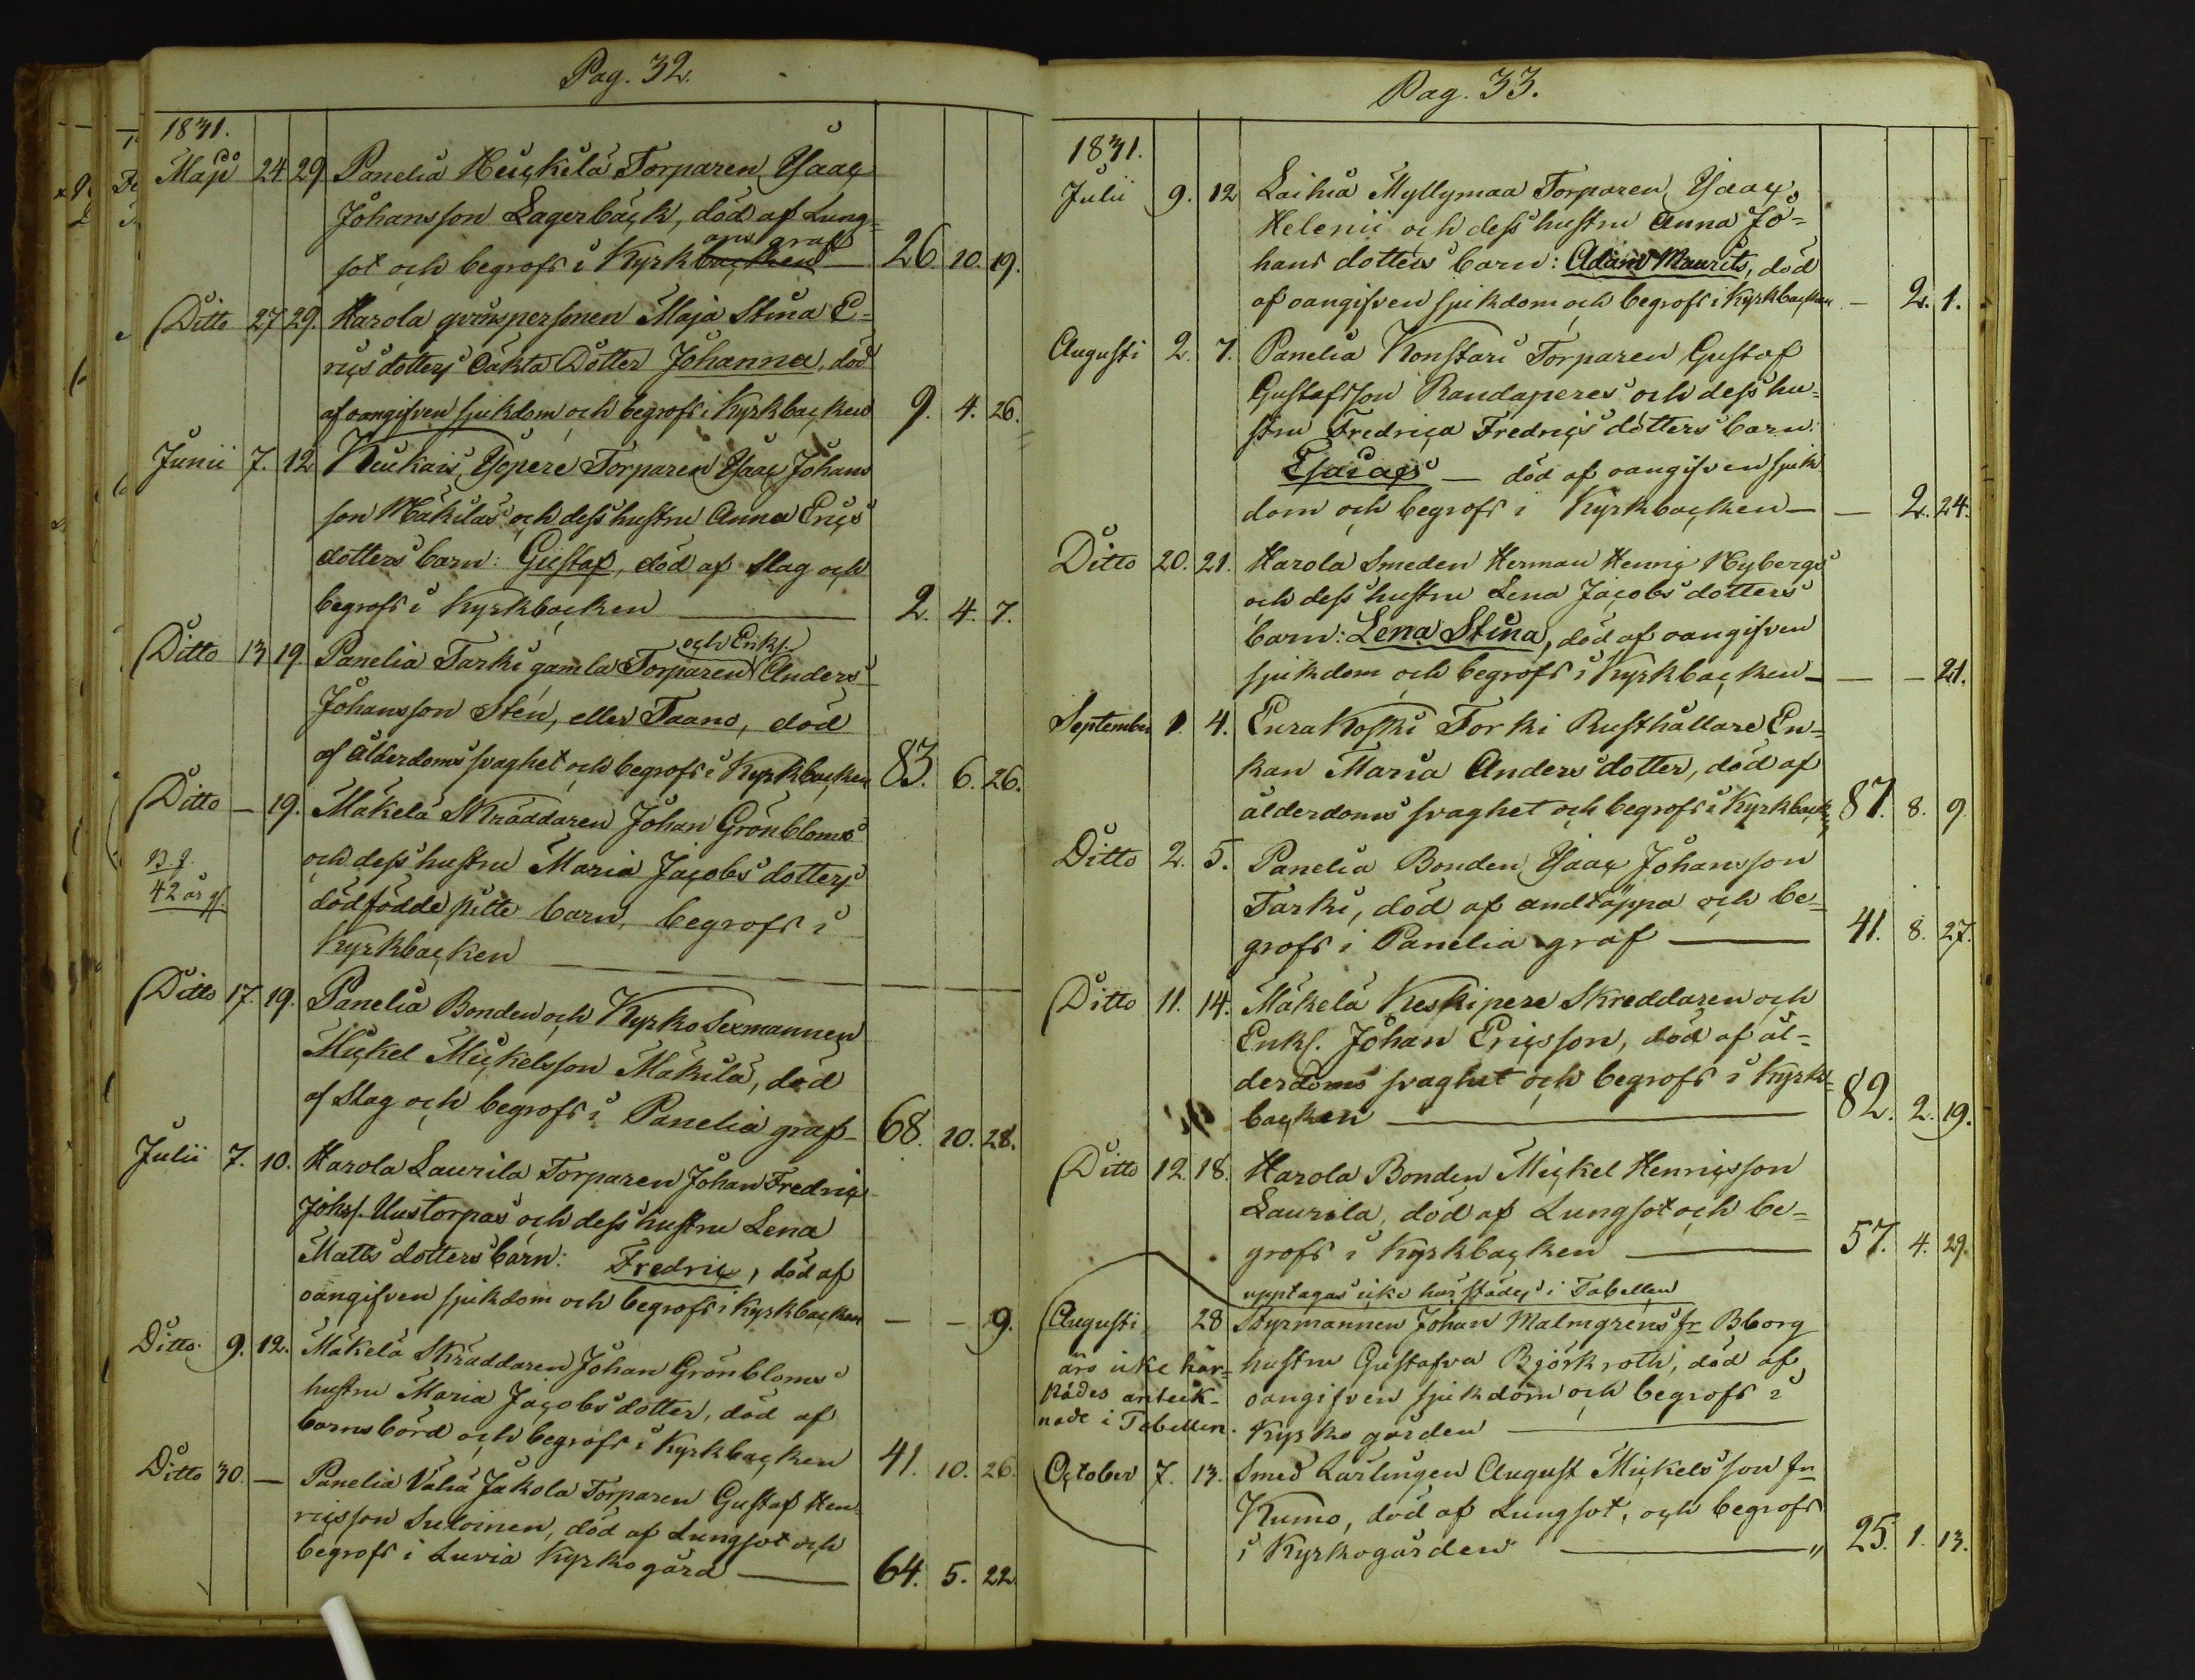 Pag. 32.
1831.
Maji 24. 29. Panelia Heickilä Torparen Isaac
Johansson Lagerbäck, död af Lung-
sot och begrofs i Kyrkbacken ans graf 26. 10. 19.
Ditto 27. 29. Harola qvinspersonen Maja Stina E-
ricsdotters oäkta Dotter Johanna, död
af oangifven sjukdom och begrofs i Kyrkbacken 9. 4. 26.
Junii 7. 12. Kiukais Yopere Torparen Isaac Johans
son Mäkiläs och dess hustru Anna Erics
dotters barn: Gustaf, död af slag och
begrofs i Kyrkbacken 2. 4. 7.
Ditto 13. 19. Panelia Tarki gamla Torparen och Enkl. Anders
Johansson Sten, eller Taano, död
af ålderdomssvaghet och begrofs i Kyrkbacken 83. 6. 26.
Ditto — 19. Mäkelä Skräddaren Johan Grönbloms
och dess hustru Maria Jacobsdotters
dödfödde barn, begrofs i
Kyrkbacken
42 år gl.
Ditto 17. 19. Panelia Bonden och Kyrko Sexmannen
Mickel Mickelsson Mäkilä, död
af Slag och begrofs i Panelia graf 68. 10. 28.
Julii 7. 10. Harola Laurila Torparen Johan Fredric
Johss. Uustorpas och dess hustru Lena
Mattsdotters barn: Fredric, död af
oangifven sjukdom och begrofs i Kyrkbacken — — 9.
Ditto 9. 12. Mäkelä Skräddaren Johan Grönbloms
hustru Maria Jacobsdotter, död af
barnsbörd och begrofs i Kyrkbacken 41. 10. 26.
Ditto 30. — Panelia Vähä Jakola Torparen Gustaf Hen
ricsson Suloinen, död af Lungsot och
begrofs i Luvia Kyrkogård 64. 5. 22.
Pag. 33.
1831.
Julii 9. 12. Laihia Myllymaa Torparen Isaac
Helenii och dess hustru Anna Jo-
hans dotters barn: Adam Maurits, död
af oangifven sjukdom och begrofs i Kyrkbacken — 2. 1.
Augusti 2. 7. Panelia Konstari Torparen Gustaf
Gustafsson Randaperes och dess hu-
stru Fredrica Fredrics dotters barn:
Esaias — död af oangifven sjuk
dom och begrofs i Kyrkbacken — — 2. 24.
Ditto 20. 21. Harola Smeden Herman Henric Nybergs
och dess hustru Lena Jacobs dotters
barn: Lena Stina, död af oangifven
sjukdom och begrofs i Kyrkbacken — — — 21.
September 1. 4. Eura Koski Torki Rusthållare En-
kan Maria Anders dotter, död af
ålderdoms svaghet och begrofs i Kyrkback 87. 8. 9.
Ditto 2. 5. Panelia Bonden Isaac Johansson
Tarki, död af andtäppa och be-
grofs i Panelia graf 41. 8. 27.
Ditto 11. 14. Mäkelä Keskipere Skreddaren och
Enkl. Johan Ericsson, död af ål-
derdoms svaghet och begrofs i Kyrk-
backen 82. 2. 19.
Ditto 12. 18. Harola Bonden Mickel Henricsson
Laurila, död af Lungsot och be-
grofs i Kyrkbacken 57. 4. 29.
upptagas icke härstädes i Tabellen
Augusti 28 Styrmannen Johan Malmgrens fr. Bborg
hustru Gustafva Björkroth, död af
oangifven sjukdom och begrofs i
Kyrko gården
äro icke här-
städes anteck-
nade i Tabellen.
October 7. 13. Smed Lärlingen August Mickelsson fr.
Kumo, död af Lungsot, och begrofs
i Kyrkogården 25. 1. 13.